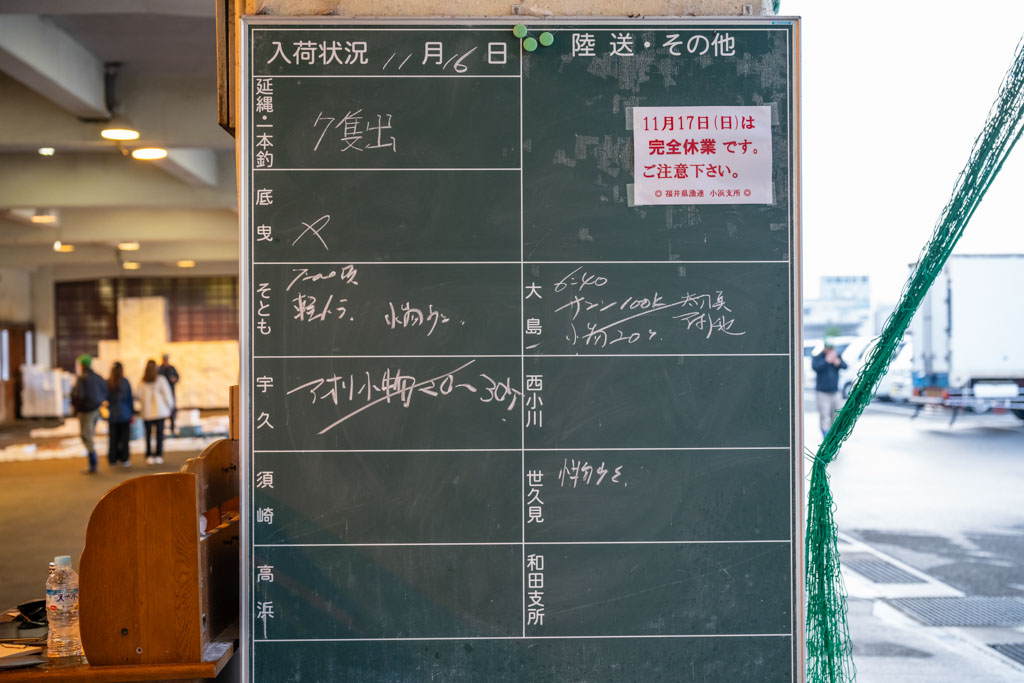 入荷状況 11月16日
陸送・その他
延縄・一本釣
7隻出
11月17日(日)は
完全休業 です。
ご注意下さい。
◎ 福井県漁連 小浜支所 ◎
底曳
×
そとも
7:00頃
軽トラ.
小物少々.
大島
6:40
サゴシ100k
小物20ヶ.
宇久
アオリ小物20〜30ヶ
西小川
須崎
世久見
小物少々.
高浜
和田支所